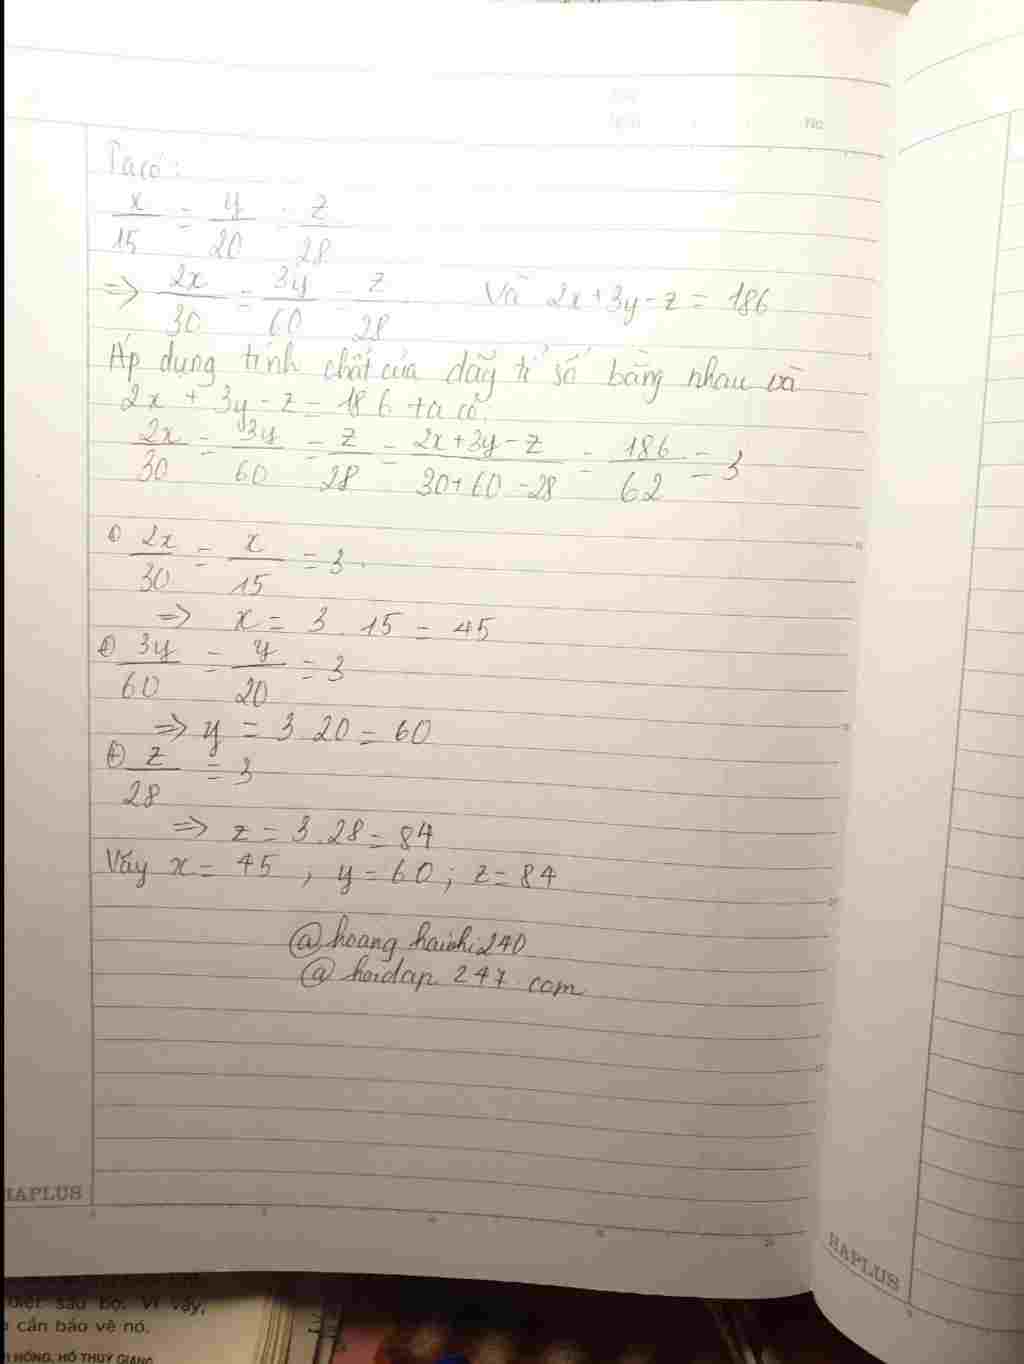 No
Ta có:
x/15 = y/20 = z/28
=> 2x/30 = 3y/60 = z/28 Và 2x+3y-z = 186
Áp dụng tính chất của dãy tỉ số bằng nhau và
2x + 3y - z = 186 ta có:
2x/30 = 3y/60 = z/28 = 2x+3y-z/30+60-28 = 186/62 = 3
+) 2x/30 = x/15 = 3.
=> x = 3.15 = 45
+) 3y/60 = y/20 = 3
=> y = 3.20 = 60
+) z/28 = 3
=> z = 3.28 = 84
Vậy x = 45, y = 60; z = 84
@hoidap 247.com
HAPLUS
HAPLUS
cần bảo vệ nó.
HỒNG, HỒ THUỶ GIANG